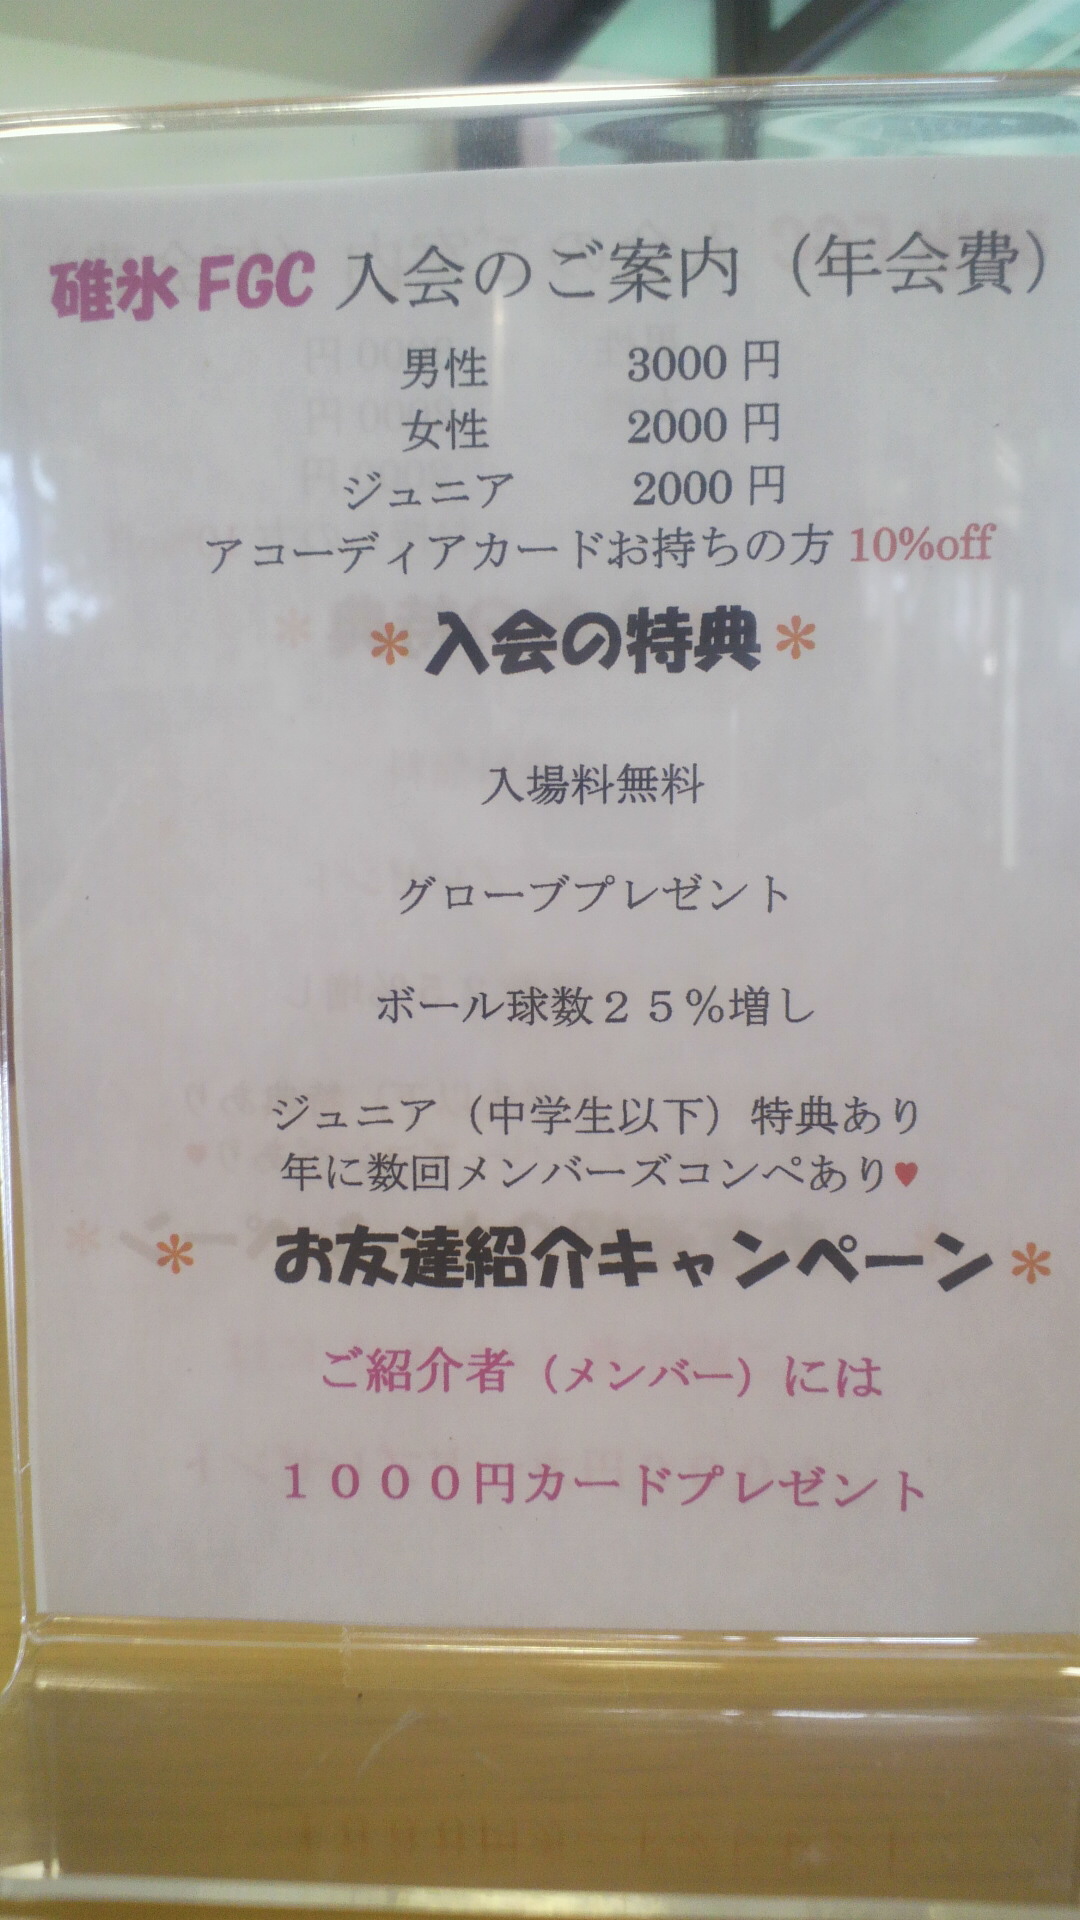 碓氷 FGC 入会のご案内（年会費）
男性 3000 円
女性 2000 円
ジュニア 2000 円
アコーディアカードお持ちの方 10%off
＊入会の特典＊
入場料無料
グローブプレゼント
ボール球数２５％増し
ジュニア（中学生以下）特典あり
年に数回メンバーズコンペあり♥
＊ お友達紹介キャンペーン＊
ご紹介者（メンバー）には
１０００円カードプレゼント